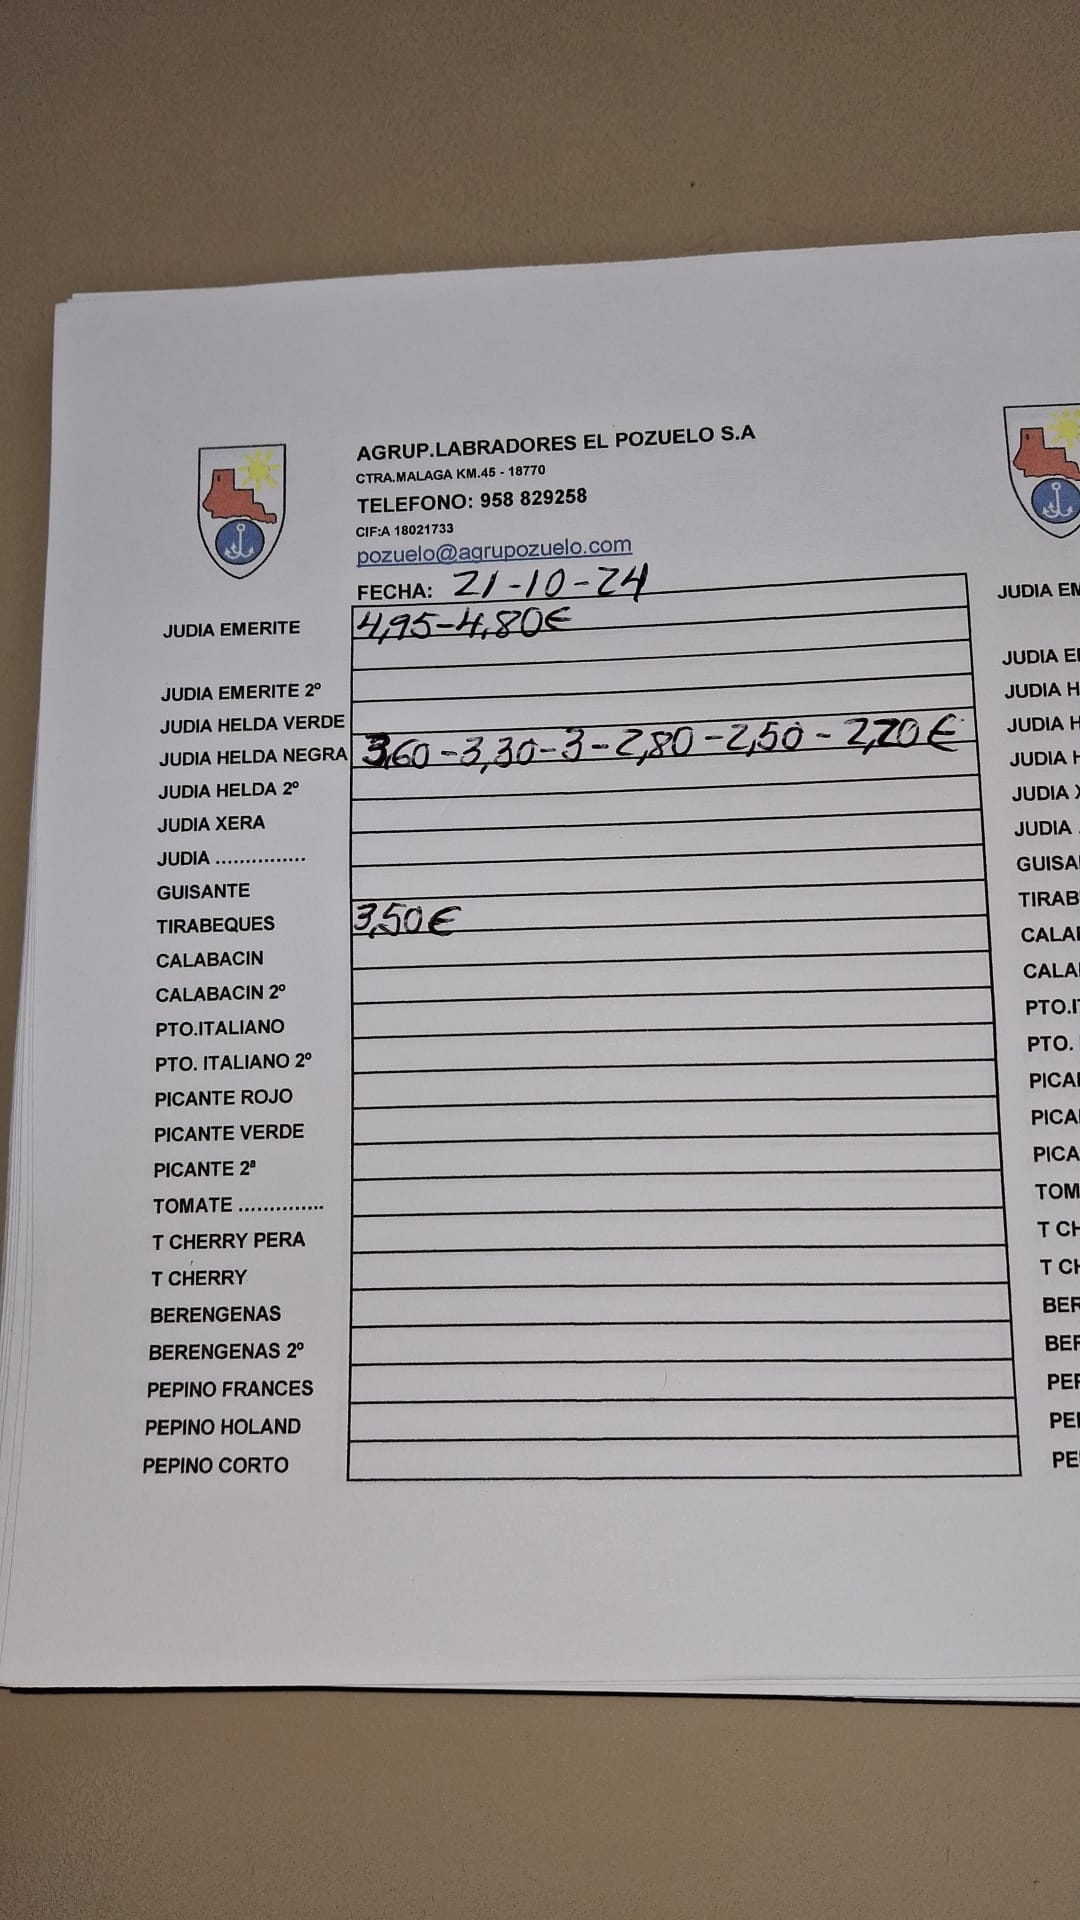 AGRUP.LABRADORES EL POZUELO S.A
CTRA.MALAGA KM.45 - 18770
TELEFONO: 958 829258
CIF:A 18021733
pozuelo@agrupozuelo.com
FECHA: 21-10-24
JUDIA EMERITE 4,95-4,80€
JUDIA EMERITE 2º
JUDIA HELDA VERDE
JUDIA HELDA NEGRA 3,60-3,30-3-2,80-2,50-2,20€
JUDIA HELDA 2º
JUDIA XERA
JUDIA ...............
GUISANTE
TIRABEQUES 3,50€
CALABACIN
CALABACIN 2º
PTO.ITALIANO
PTO. ITALIANO 2º
PICANTE ROJO
PICANTE VERDE
PICANTE 2ª
TOMATE ..............
T CHERRY PERA
T CHERRY
BERENGENAS
BERENGENAS 2º
PEPINO FRANCES
PEPINO HOLAND
PEPINO CORTO
JUDIA EM
JUDIA E
JUDIA H
JUDIA H
JUDIA H
JUDIA X
JUDIA .
GUISA
TIRAB
CALA
CALA
PTO.I
PTO.
PICA
PICA
PICA
TOM
T CH
T CH
BER
BER
PEP
PE
PE